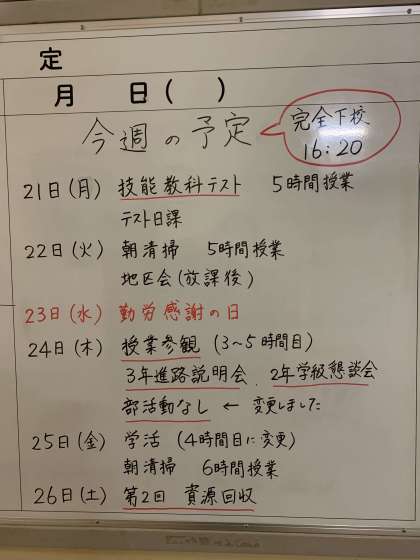 定
月 日( )
今週の予定
完全下校
16:20
21日(月) 技能教科テスト 5時間授業
テスト日課
22日(火) 朝清掃 5時間授業
地区会(放課後)
23日(水) 勤労感謝の日
24日(木) 授業参観 (3~5時間目)
3年進路説明会、2年学級懇談会
部活動なし ← 変更しました
25日(金) 学活 (4時間目に変更)
朝清掃 6時間授業
26日(土) 第2回 資源回収